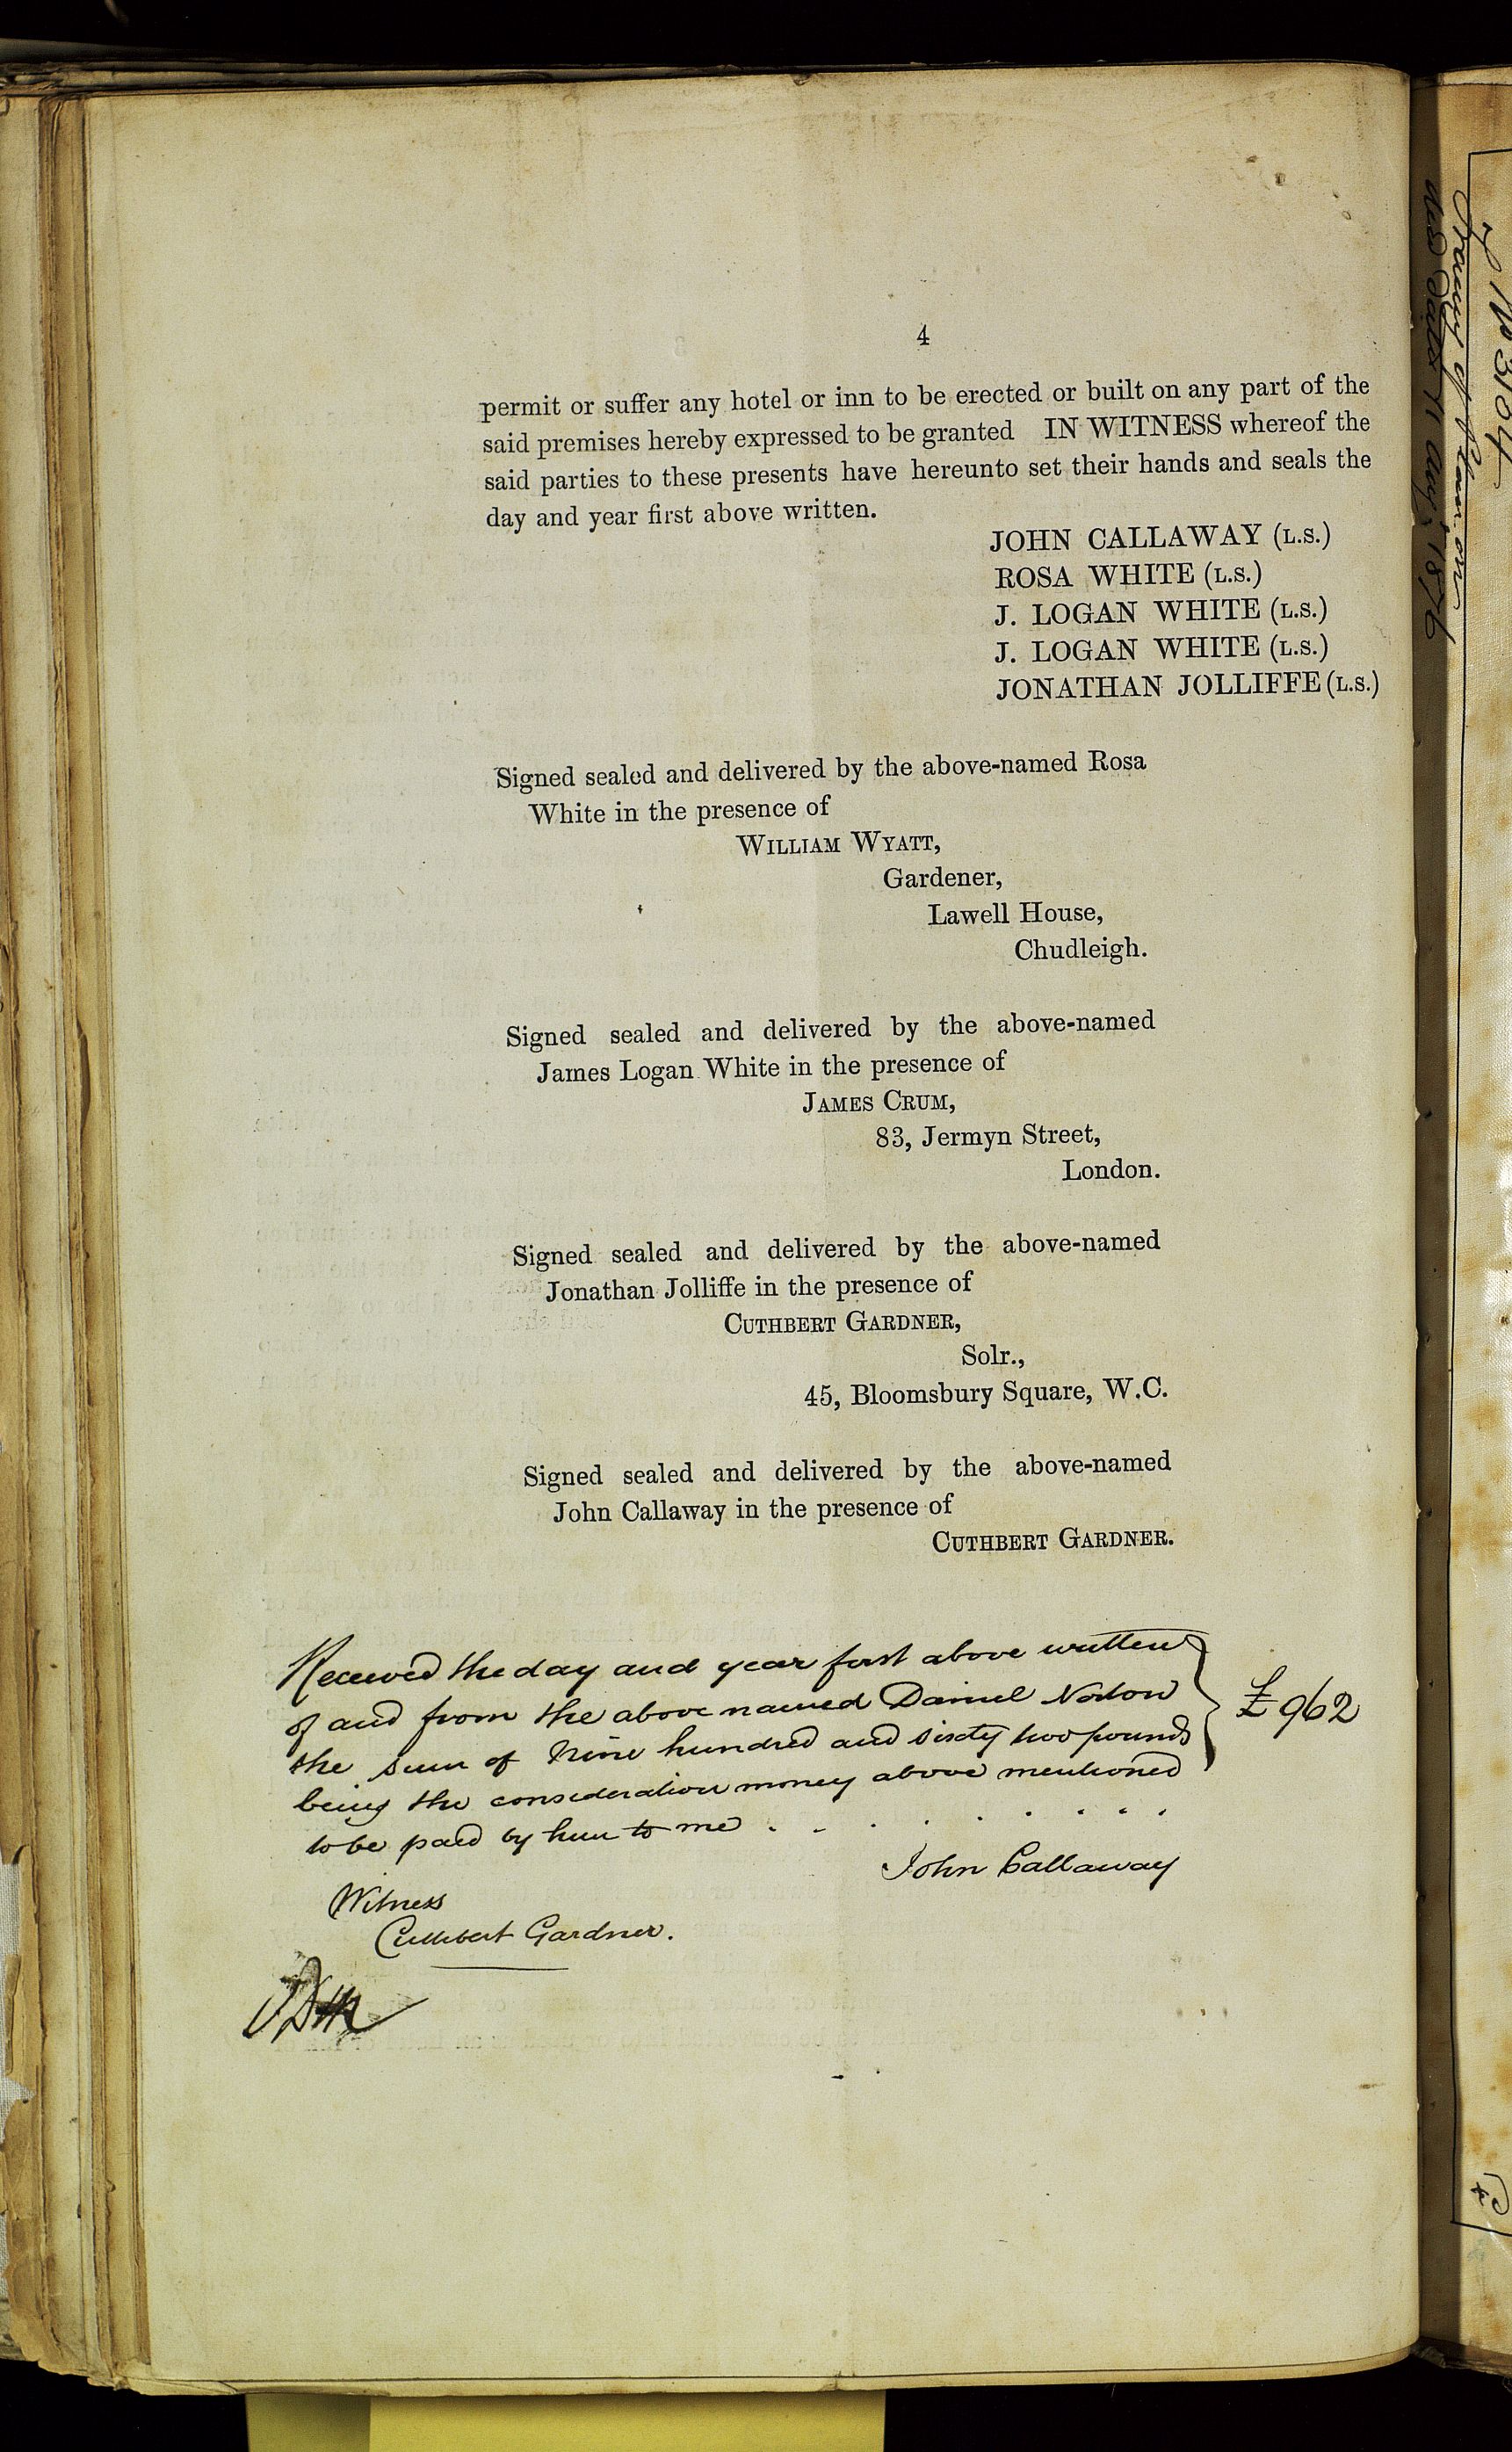 4
permit or suffer any hotel or inn to be erected or built on any part of the
said premises hereby expressed to be granted IN WITNESS whereof the
said parties to these presents have hereunto set their hands and seals the
day and year first above written.
JOHN CALLAWAY (L.S.)
ROSA WHITE (L.S.)
J. LOGAN WHITE (L.S.)
J. LOGAN WHITE (L.S.)
JONATHAN JOLLIFFE (L.S.)
Signed sealed and delivered by the above-named Rosa
White in the presence of
WILLIAM WYATT,
Gardener,
Lawell House,
Chudleigh.
Signed sealed and delivered by the above-named
James Logan White in the presence of
JAMES CRUM,
83, Jermyn Street,
London.
Signed sealed and delivered by the above-named
Jonathan Jolliffe in the presence of
CUTHBERT GARDNER,
Solr.,
45, Bloomsbury Square, W.C.
Signed sealed and delivered by the above-named
John Callaway in the presence of
CUTHBERT GARDNER.
Received the day and year first above written
of and from the above named Daniel Norton
the sum of Nine hundred and sixty two pounds
£962
being the consideration money above mentioned
to be paid by him to me . . . . . . . .
John Callaway
Witness
Cuthbert Gardner.
No 3184
Tracing of Plan on
deed dated 11 Aug 1876